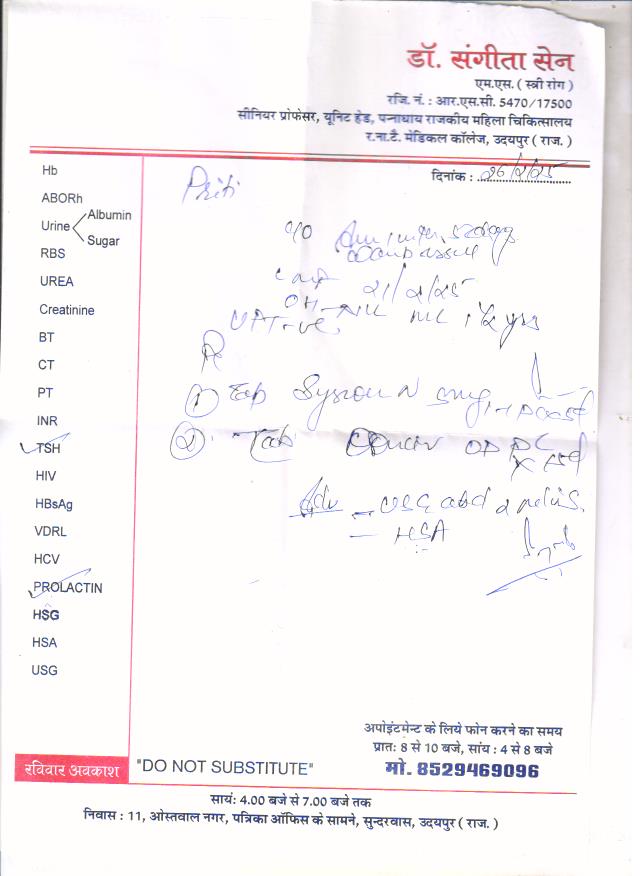 डॉ. संगीता सेन
एम.एस. ( स्त्री रोग )
रजि. नं. : आर.एस.सी. 5470/17500
सीनियर प्रोफेसर, यूनिट हेड, पन्नाधाय राजकीय महिला चिकित्सालय
र.ना.टै. मेडिकल कॉलेज, उदयपुर ( राज. )
दिनांक :
Hb
ABORh
Urine Albumin
Sugar
RBS
UREA
Creatinine
BT
CT
PT
INR
TSH
HIV
HBsAg
VDRL
HCV
PROLACTIN
HSG
HSA
USG
Priti
c/o
UPT-ve
R
①
② Tab OD PC
Adv - USG abd
- HSA
अपोइंटमेन्ट के लिये फोन करने का समय
प्रात: 8 से 10 बजे, सांय : 4 से 8 बजे
मो. 8529469096
रविवार अवकाश
"DO NOT SUBSTITUTE"
सायं: 4.00 बजे से 7.00 बजे तक
निवास : 11, ओस्तवाल नगर, पत्रिका ऑफिस के सामने, सुन्दरवास, उदयपुर ( राज. )